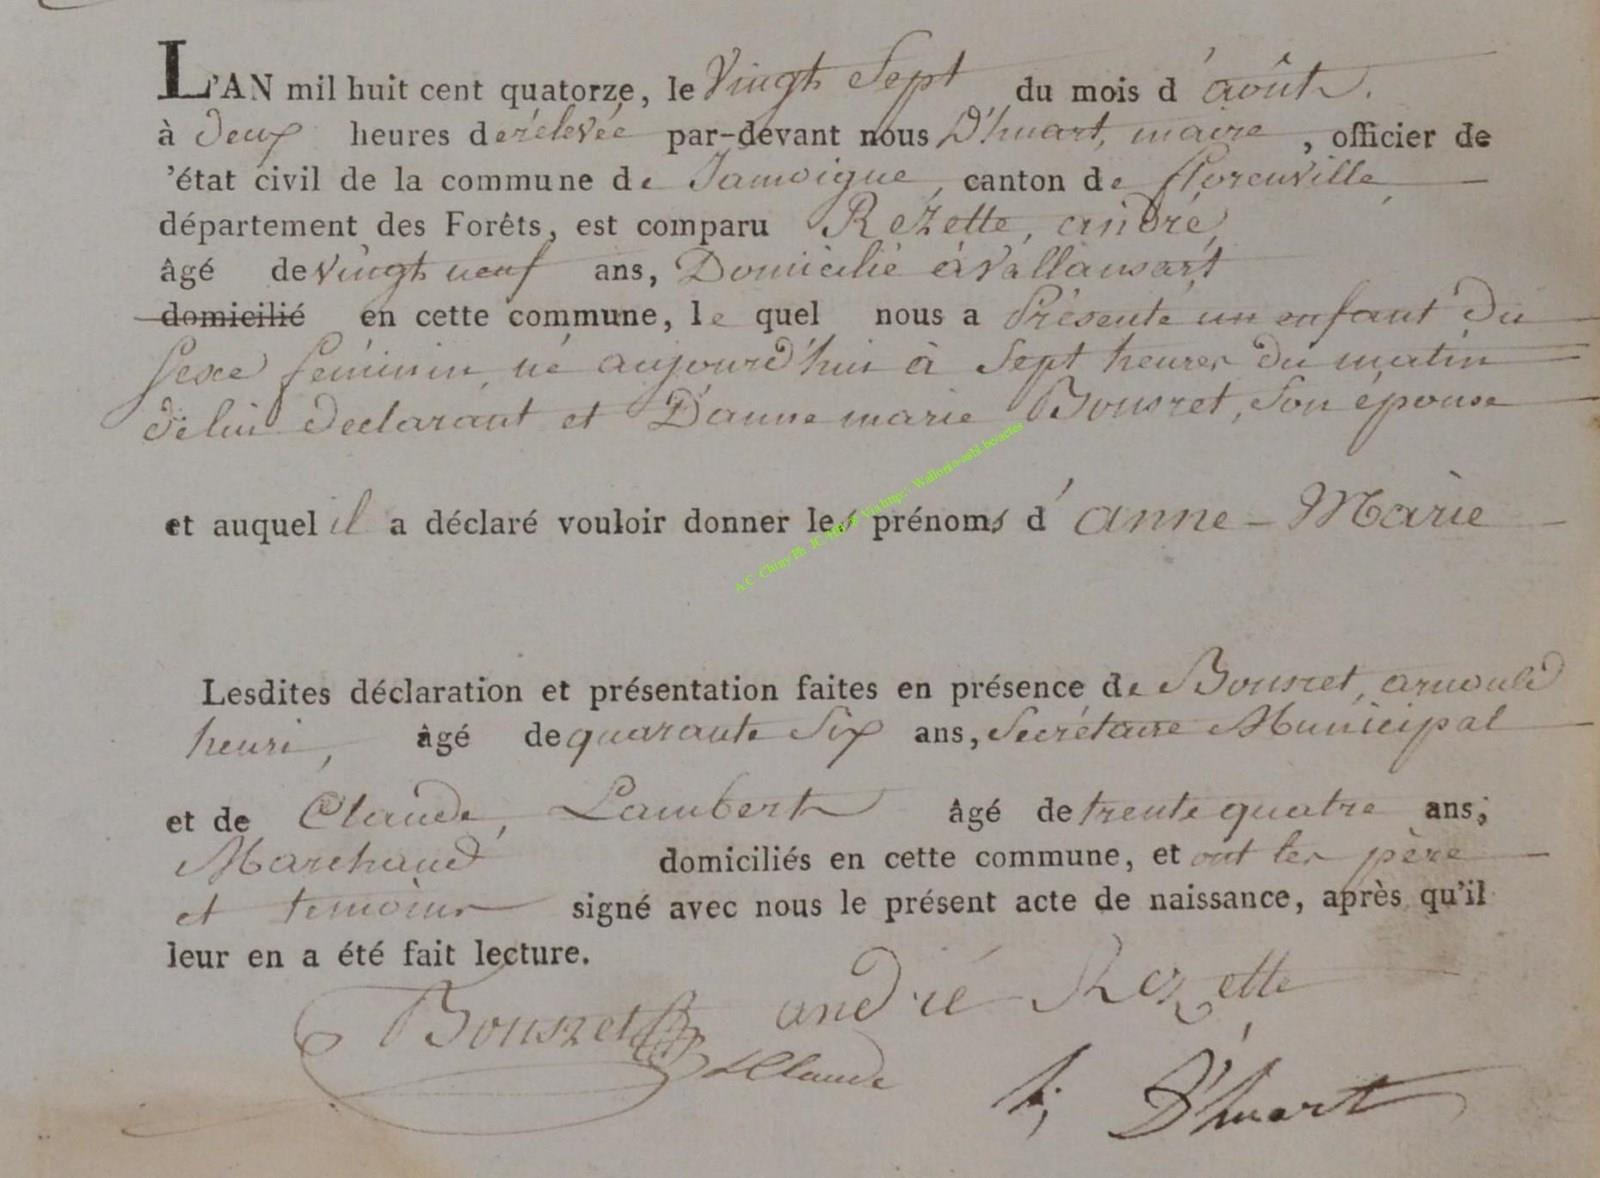 L'AN mil huit cent quatorze, le Vingt Sept du mois d'août.
à deux heures de rélevée par-devant nous D'huart, maire, officier de
'état civil de la commune de Jamoigne, canton de florenville
département des Forêts, est comparu Rezette, andré,
âgé de vingt neuf ans, Domicilié à Vallansart
domicilié en cette commune, le quel nous a Présenté un enfant du
sexe féminin, né aujourd'hui à Sept heures du matin
de lui declarant et D'anne marie Bousret, Son épouse
et auquel il a déclaré vouloir donner les prénoms d'anne-Marie
Lesdites déclaration et présentation faites en présence de Bousret, arnould
henri, âgé de quarante Six ans, Secrétaire Municipal
et de Claude, Lambert âgé de trente quatre ans,
Marchand domiciliés en cette commune, et ont les père
et temoins signé avec nous le présent acte de naissance, après qu'il
leur en a été fait lecture.
andré Rezette
Bouszet
LClaude
D'huart